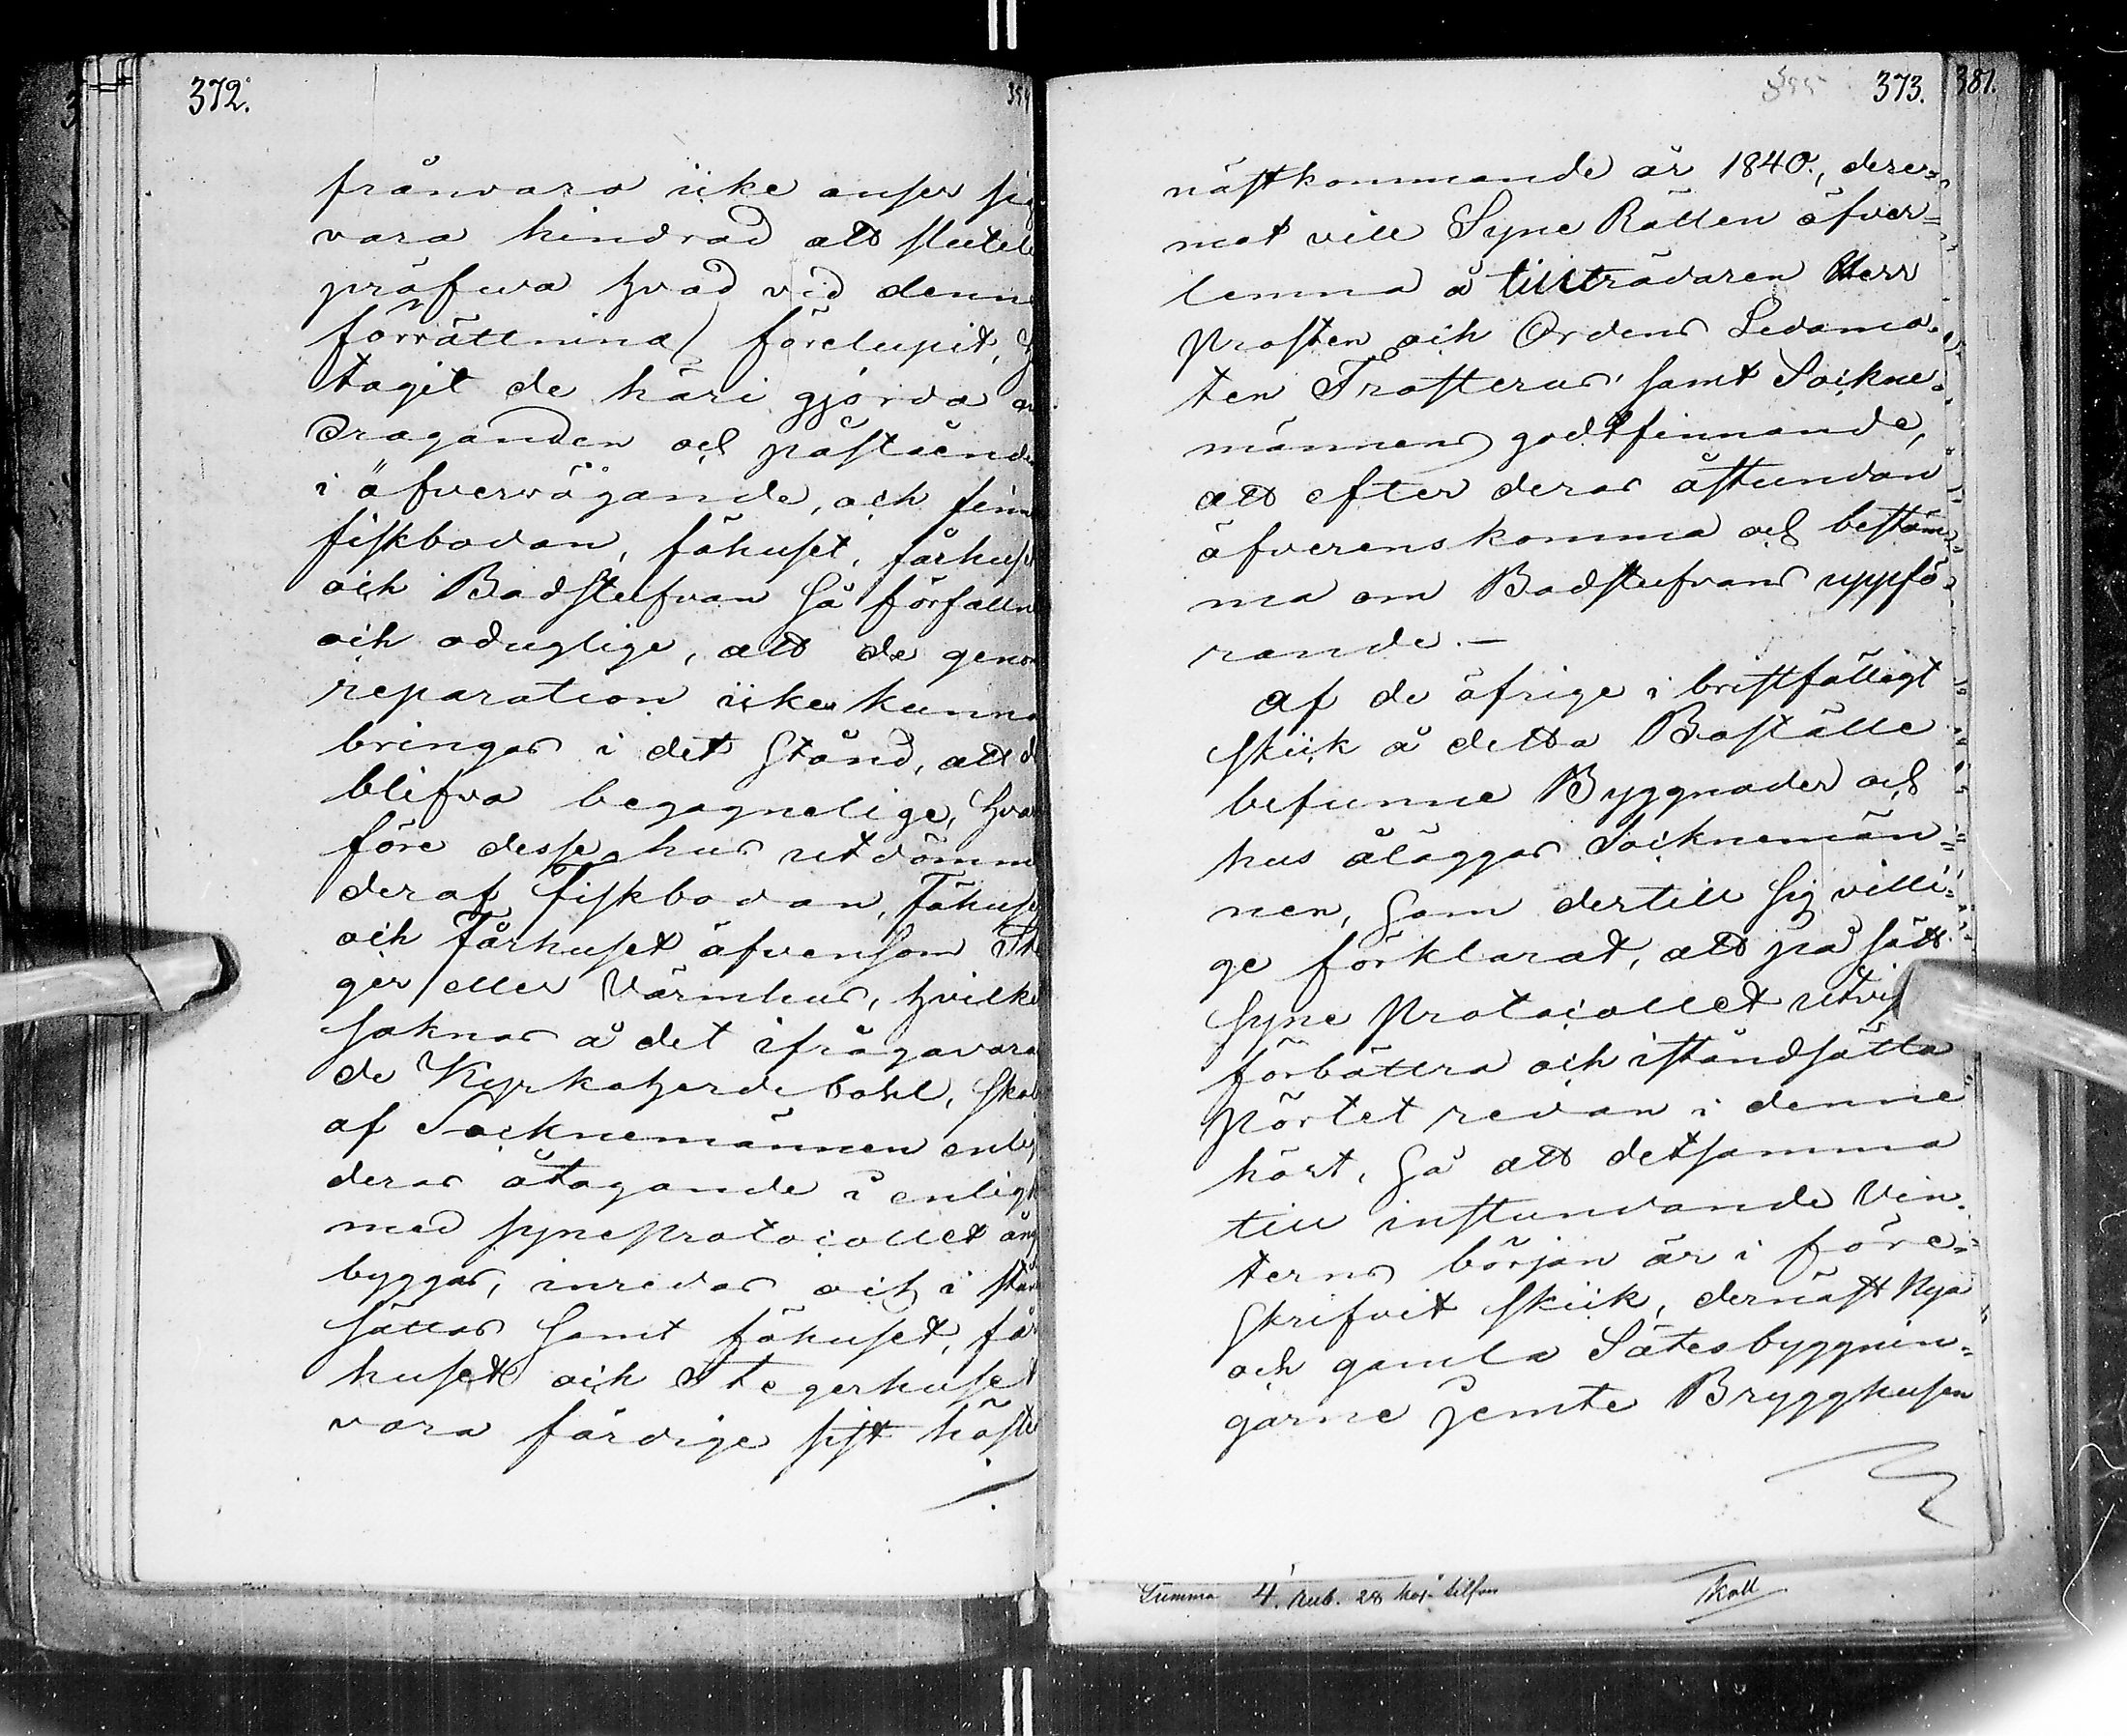 372.
frånvaro icke anser sig
vara hindrad att slutel
pröfwa hvad vid denn
förrättning förelupit,
tagit de häri gjorda an
draganden och påståend
i öfvervägande, och finn
fiskbodan, fähuset, fårhus
och Badstufvan så förfalln
och oduglige, att de genom
reparation icke kunna
bringas i det stånd, att d
blifva begagnelige, hvar
före desse hus utdömm
deraf Fiskbodan, Fähuse
och Fårhuset äfvensom Ste
ger eller Värmhus, hvilke
saknas å det ifrågavara
de Kyrkoherdebohl, skol
af Socknemännen enl
deras åtagande i enligt
med syneprotocollet å ny
byggas, inredas och i stån
sättas samt fähuset, får
huset och Stegerhuset
vara färdige sist höste
373.
381.
nästkommande år 1840., dere-
mot vill Syne Rätten öfver=
lemna å tillträdaren Herr
Prosten och Ordens Ledamo-
ten Frosterus' samt Sockne-
männens godtfinnande,
att efter deras åstundan
öfverenskomma och bestäm=
ma om Badstufvans uppfö-
rande. -
Af de öfrige i bristfälligt
skick å detta Boställe
befunne Byggnader och
hus åläggas Socknemän=
nen, som dertill sig villi-
ge förklarat, att på sätt
Syne Protocollet utvis
förbättra och iståndsätta
Pörtet redan i denne
höst, så att detsamma
till instundande Vin-
terns början är i före=
skrifvit skick, dernäst Nya
och gamla Sätesbyggnin=
garne jemte Brygghusen
Summa 4. Rub. 28 Kop. silfver